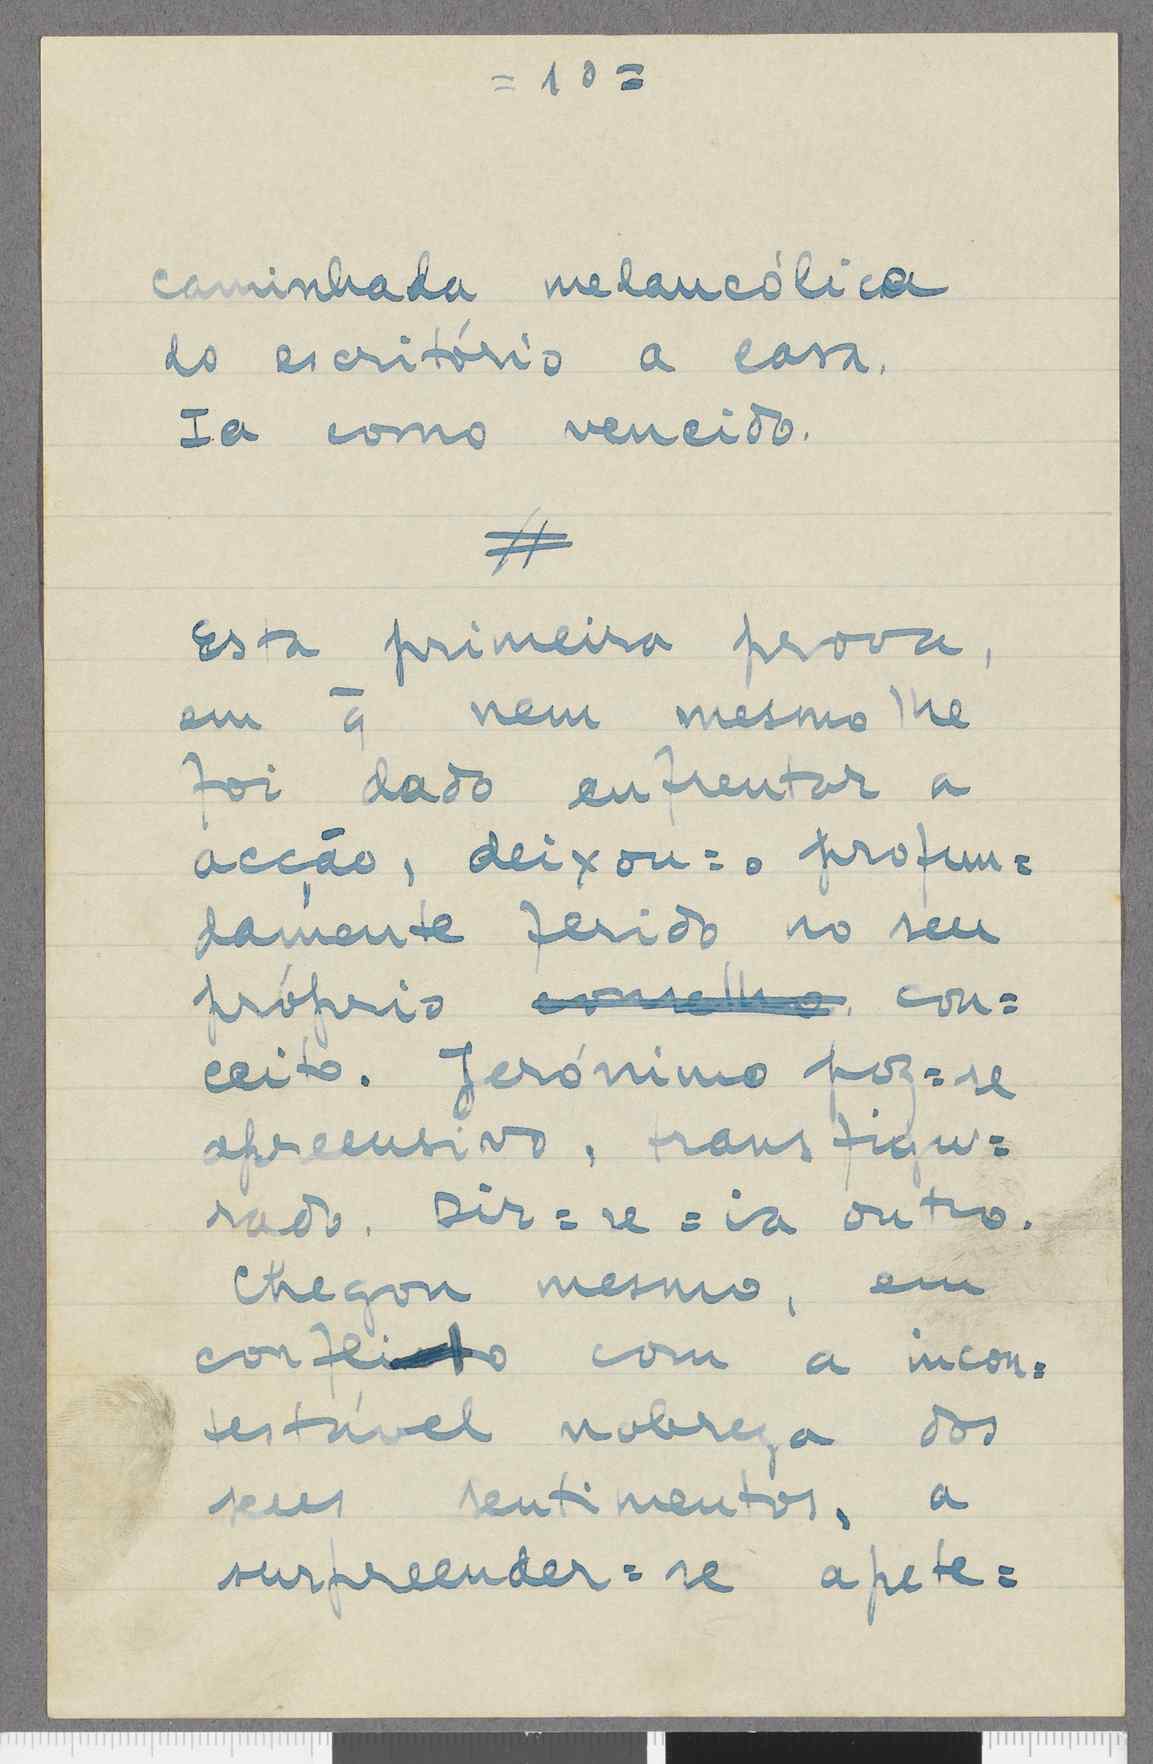 = 10 =
caminhada melancólica
do escritório a casa.
Ia como vencido.
#
Esta primeira prova,
em q̄ nem mesmo lhe
foi dado enfrentar a
acção, deixou=o profun=
damente ferido no seu
próprio conselho con=
ceito. Jerónimo poz=se
apreensivo, transfigu=
rado. Dir=se=ia outro.
Chegou mesmo, em
conflicto com a incon=
testável nobreza dos
seus sentimentos, a
surpreender=se apete=